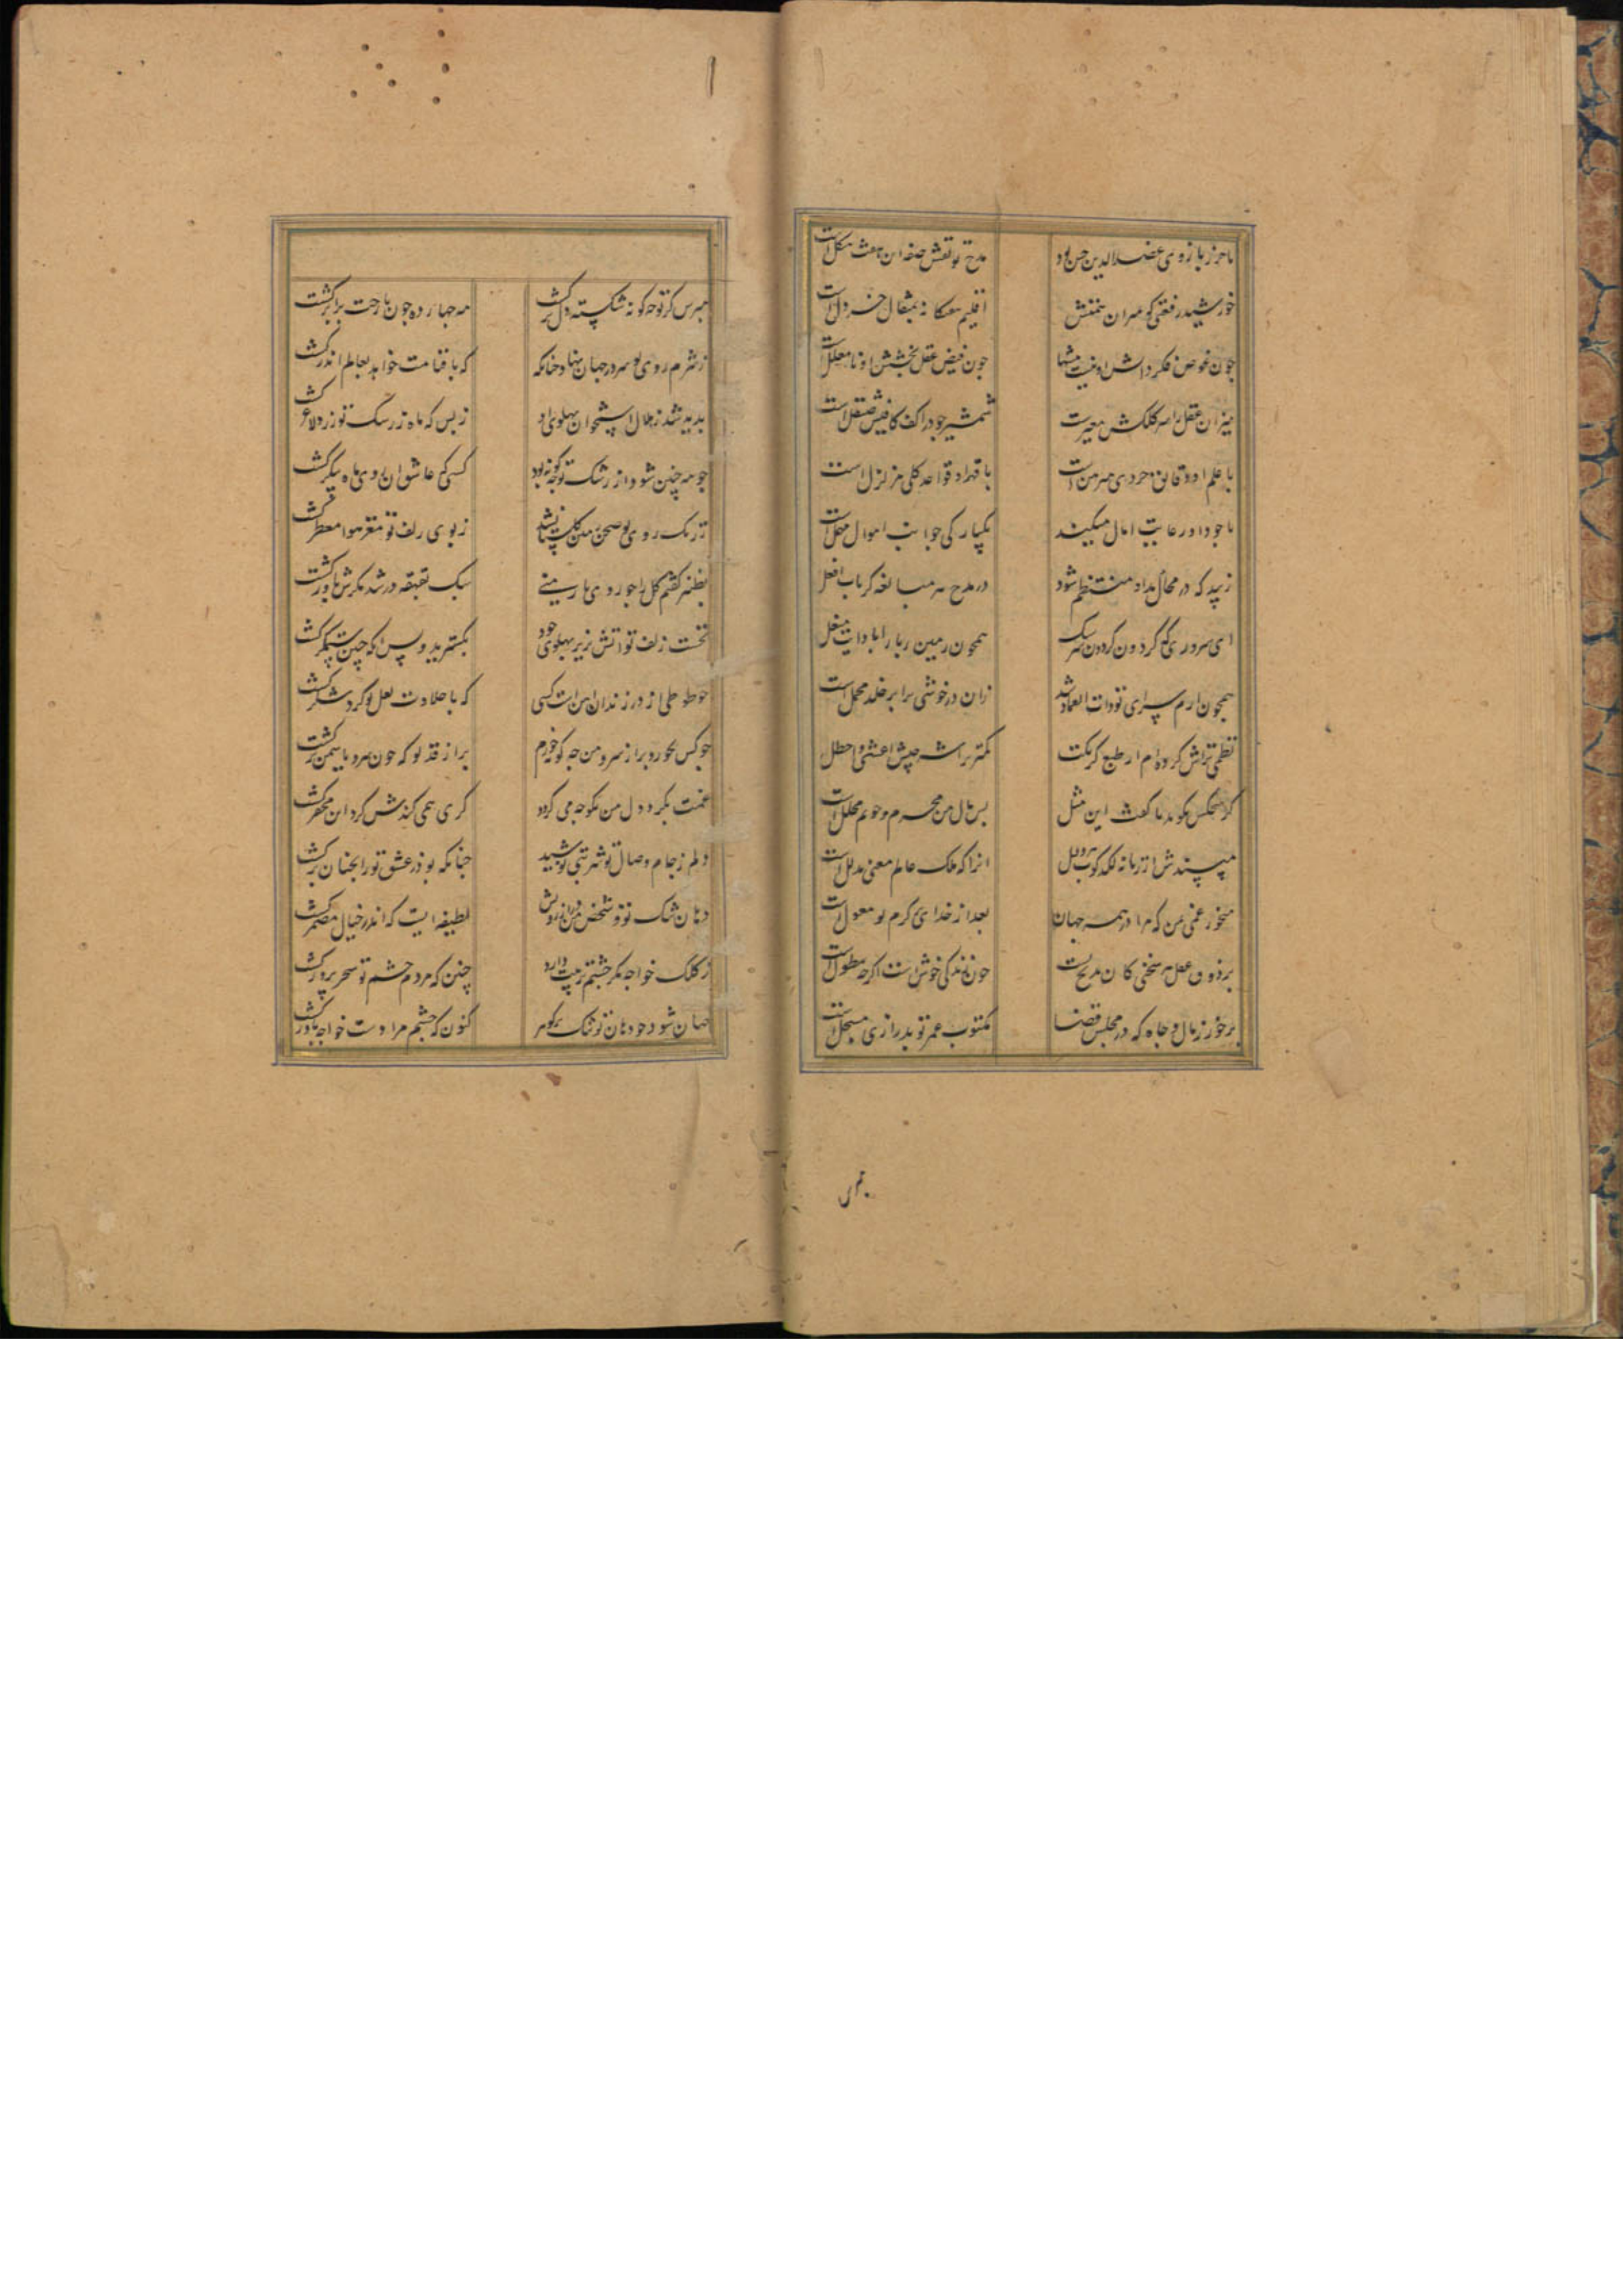 تا حرز بازوی عضد الدین حسن بود
مدح تو نقش صفه این هفت هیکل است
خورشید رفعتی که بمیزان همتش
اقلیم هفتگانه بمثقال خردل است
چون غوص فکر دانش او بی منتها
چون فیض عقل بخشش او نامعلل است
میزان عقل را سر کلکش معیر است
شمشیر جود را کف کافیش صیقل است
با علم او دقایق جزوی مبرهن است
با قهر او قواعد کلی مزلزل است
با جود او رعایت امال میکند
یکبارکی جوانب اموال مهمل است
زیبد که در محال مداد منتظم شود
در مدح هر مبالغه کز باب افعل
ای سروری که کردون کردون
همچون زمین را
همچون ارم سرای تو ذات العماد شد
زان در خوشی برابر خلد
نظمی تراش کرده ام از طبع کز نکت
کمتر تراشه پیش اعشی و اخطل
کر هیچکس نکوید با کفت این مثل
بس مال من محرم و خونم محلل است
مپسندش از زمانه لکدکوب
انرا که ملک عالم معنی مدلل است
میخور غمی من که مرا در همه جهان
بعد از خدای بر کرم تو معول است
بر ذوق عقل هر سخنی کان مدیح تست
چون زندکی خوش است اکرچه مطول است
برخور ز مال و جاه که در مجلس قضا
مکتوب عمر تو بدرازی مسجل است
مپرس کز تو چه کونه شکسته دل برکشت
مه چهارده چون با رخت برابر کشت
ز شرم روی تو سر در جهان نهاد چنانکه
که تا قیامت خواهد بعالم اندر کشت
پدید شد ز هلال استخوان پهلوی او
ز بس که ماه ز رشک تو زرد و لاغر کشت
چو مه چنین شود از رشک تو چه کونه بود
کسی که عاشق ان روی ماه پیکر کشت
ز رنک روی تو صحن چمن کلستان شد
ز بوی زلف تو مغز هوا معطر کشت
بطنز کفتم کل را چو روی یار منی
بیک قهقهه در شد مکرش باور کشت
نخست زلف تو اتش بزیر پهلوی خود
بکسترید و پس انکه چنین ستمکر کشت
چو طوطی از در زندان اهن است کسی
که با حلاوت لعل تو کرد شکر کشت
چو کس نخورد بر از سرو من چه کونه خورم
بر از قد تو که چون سرو یاسمن بر کشت
غمت بکرد دل من نکو چه می کردد
کری همی کندش کرد این محقر کشت
دلم ز جام وصال تو شربتی نوشید
چنانکه بود ز عشق تو را انچنان برکشت
دهان تنک تو و شخص من
لطیفه ایست که اندر خیال مضمر کشت
ز کلک خواجه مکر چشم تربیت دارد
چنین که مردم چشم تو سحر پرور کشت
جهان شود چو دهان تو تنک پر کوهر
کنون که چشم مرا دست خواجه یاور کشت
بمری